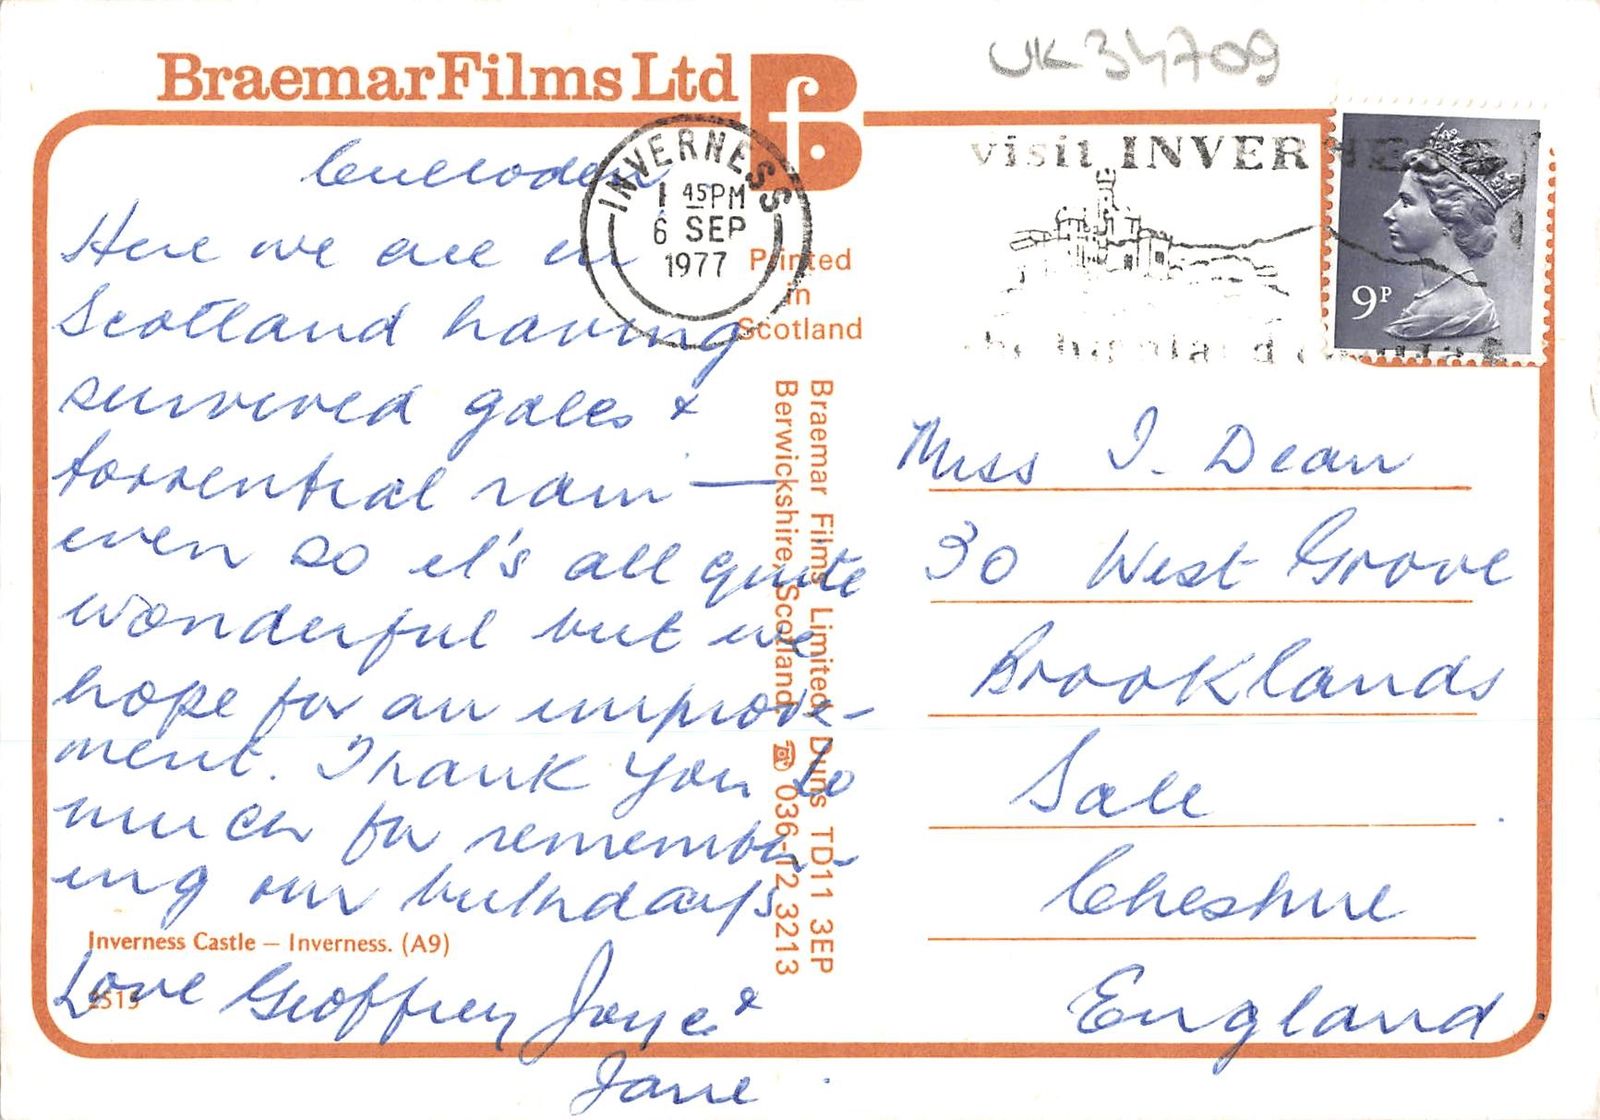 UK 34709
Braemar Films Ltd
Bf
INVERNESS
1 45PM
6 SEP
1977
visit INVERNESS
the highland
9P
Printed
in
Scotland
Culloden
Here we are in
Scotland having
survived gales &
torrential rain —
even so it's all quite
wonderful but we
hope for an improve-
ment. Thank you so
much for remember-
ing our birthdays
Inverness Castle – Inverness. (A9)
Love Geoffrey Joyce &
Jane.
Braemar Films Limited, Duns TD11 3EP
Berwickshire, Scotland. ☎ 036-12 3213
Miss I. Dean
30 West Grove
Brooklands
Sale
Cheshire
England